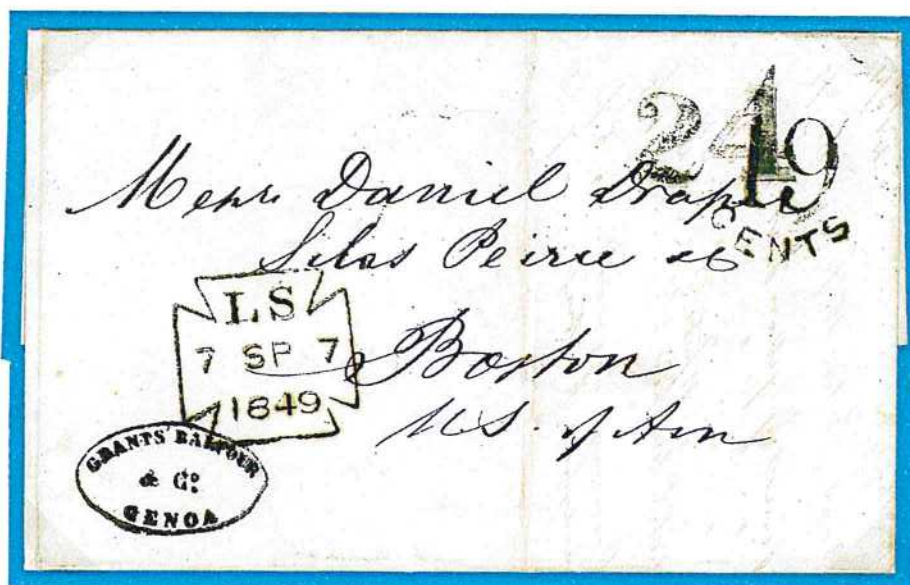 24
19
CENTS
Messrs. Daniel Draper
Silas Peirce & Co
Boston
U.S. of Am
LS
7 SP 7
1849
GRANTS BALFOUR
& Co.
GENOA